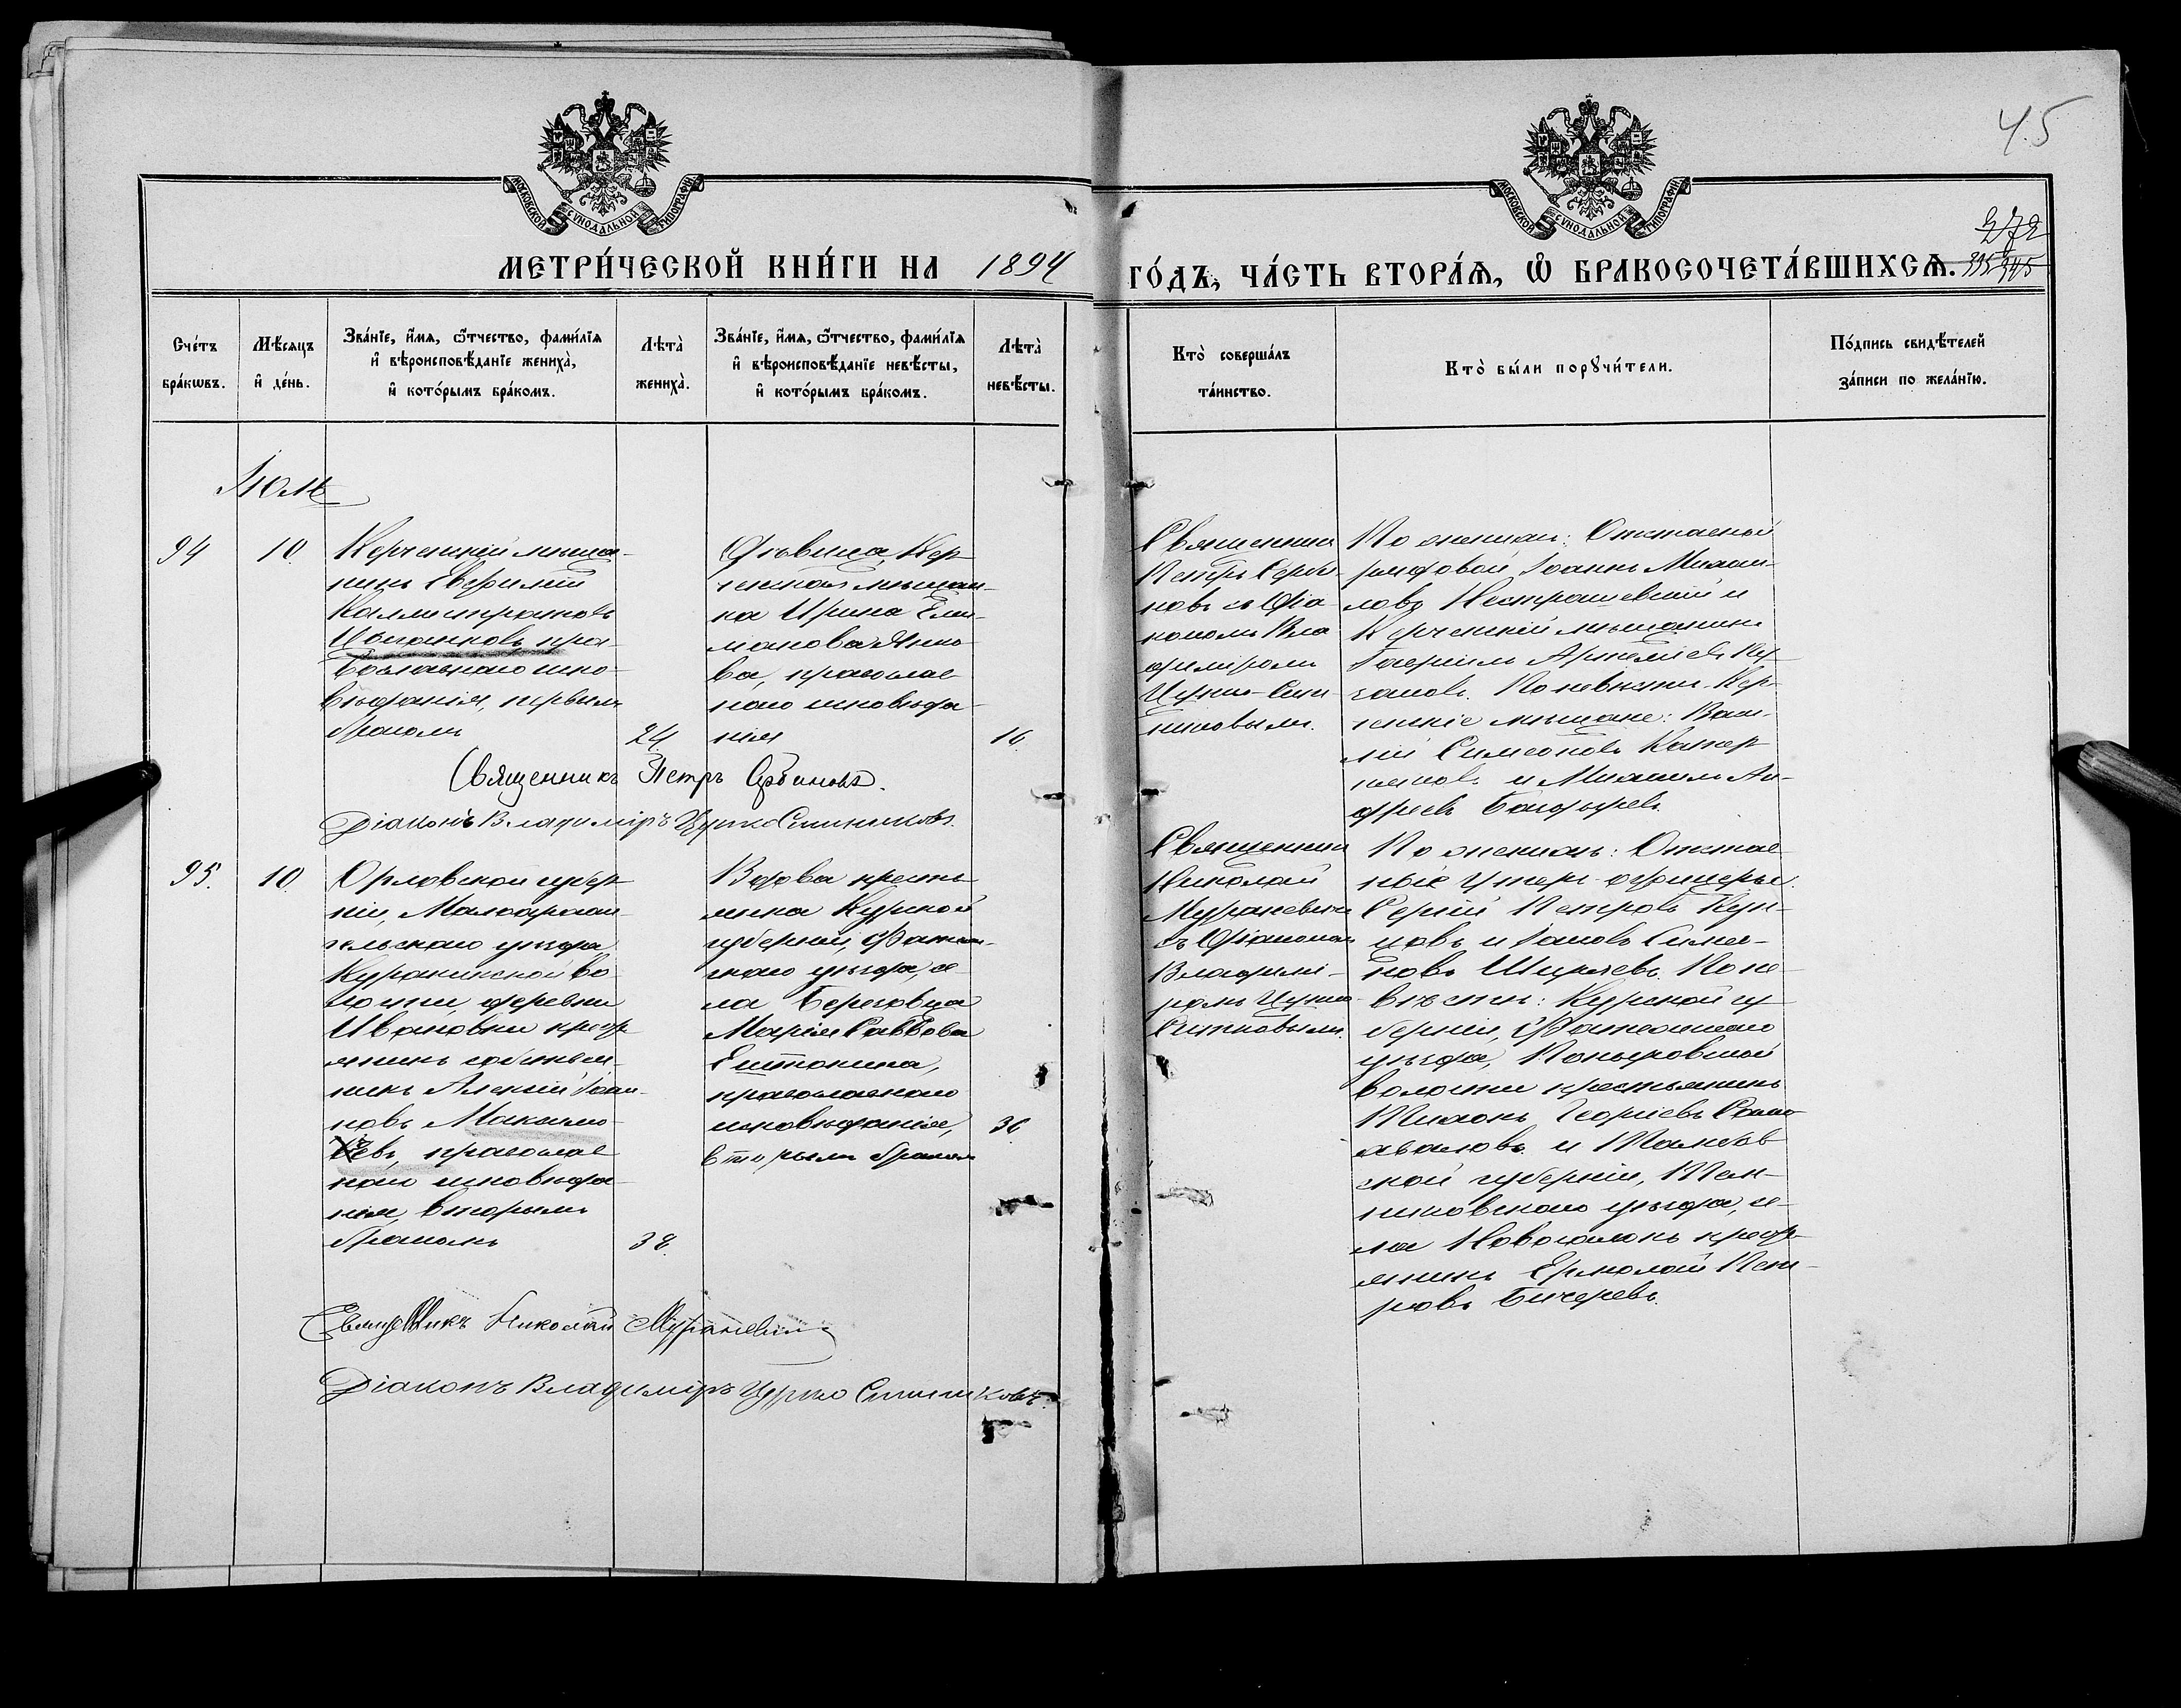 45
МОСКОВСКОЙ СУНОДАЛЬНОЙ ТИПОГРАФІИ
МОСКОВСКОЙ СУНОДАЛЬНОЙ ТИПОГРАФІИ
372
335 345
МЕТРИ́ЧЕСКОЙ КНИ́ГИ НА 1894
ГО́ДЪ, ЧА́СТЬ ВТОРА́Ѧ, Ѽ БРАКОСОЧЕТА́ВШИХСѦ.
Сче́тъ
бра́кѡвъ.
Мѣ́сяцъ
и҆ де́нь.
Зва́нїе, и҆́мѧ, ѻ҆́тчество, фами́лїѧ
и҆ вѣроисповѣ́данїе жениха̀,
и҆ кото́рымъ бра́комъ.
Лѣта̀
жениха̀.
Зва́нїе, и҆́мѧ, ѻ҆́тчество, фами́лїѧ
и҆ вѣроисповѣ́данїе невѣ́сты,
и҆ кото́рымъ бра́комъ.
Лѣта̀
невѣ́сты.
Кто̀ соверша́лъ
та́инство.
Кто̀ бы́ли порꙋчи́тели.
По́дпись свидѣ́телей
за́писи по жела́нїю.
Іюль
94
10.
Керченскій мѣща-
нинъ Евфимій
Каллистратовъ
пра-
вославнаго испо-
вѣданія, первымъ
бракомъ
24.
Дѣвица, Кер-
ченская мѣщан-
ка Ирина Ели-
ва, православ
наго исповѣда-
нія
16.
Священникъ
Петръ Серби-
новъ съ Діа-
кономъ Вла
диміромъ
Цурка-Сит-
никовымъ.
По женихѣ: Отставной
рядовой Іоаннъ Михаи-
ловъ и
Керченскій мѣщанинъ
Гавріилъ Артеміевъ Кур-
По невѣстѣ: Кер-
ченскіе мѣщане: Васи-
лій Симеоновъ
и Михаилъ Ан-
дреевъ
Священникъ Петръ Сербиновъ.
Діаконъ Владиміръ Цурка Ситниковъ.
95.
10.
Орловской губер-
ніи, Малоархан-
гельскаго уѣзда
Куракинской во-
лости, деревни
Ивановки крест-
янинъ собствен-
никъ Алексій Іоан-
новъ Макашо-
евъ, православ
наго исповѣда-
нія, вторымъ
бракомъ
38.
Вдова крестъ-
янка Курской
губерніи, Фатеж-
скаго уѣзда, се-
ла Березовца
Марія Саввова
православнаго
исповѣданія,
вторымъ бракомъ
36.
Священникъ
Николай
Мураневичъ
съ Діакономъ
Владимі-
ромъ Цурка-
Ситниковымъ.
По женихѣ: Отстав-
ные унтеръ-офицеры:
Сергій Петровъ Куп-
цовъ и Іаковъ Симео-
новъ Ширяевъ. По не-
вѣстѣ: Курской гу-
берніи, Фатежскаго
уѣзда, Поныровской
волости крестьянинъ
Тихонъ Георгіевъ
и Тамбов
ской губерніи, Тем-
никовскаго уѣзда, се-
ла крест-
янинъ Ермолай Пет-
ровъ Бичеревъ.
Священникъ Николай Мураневичъ
Діаконъ Владиміръ Цурка Ситниковъ.